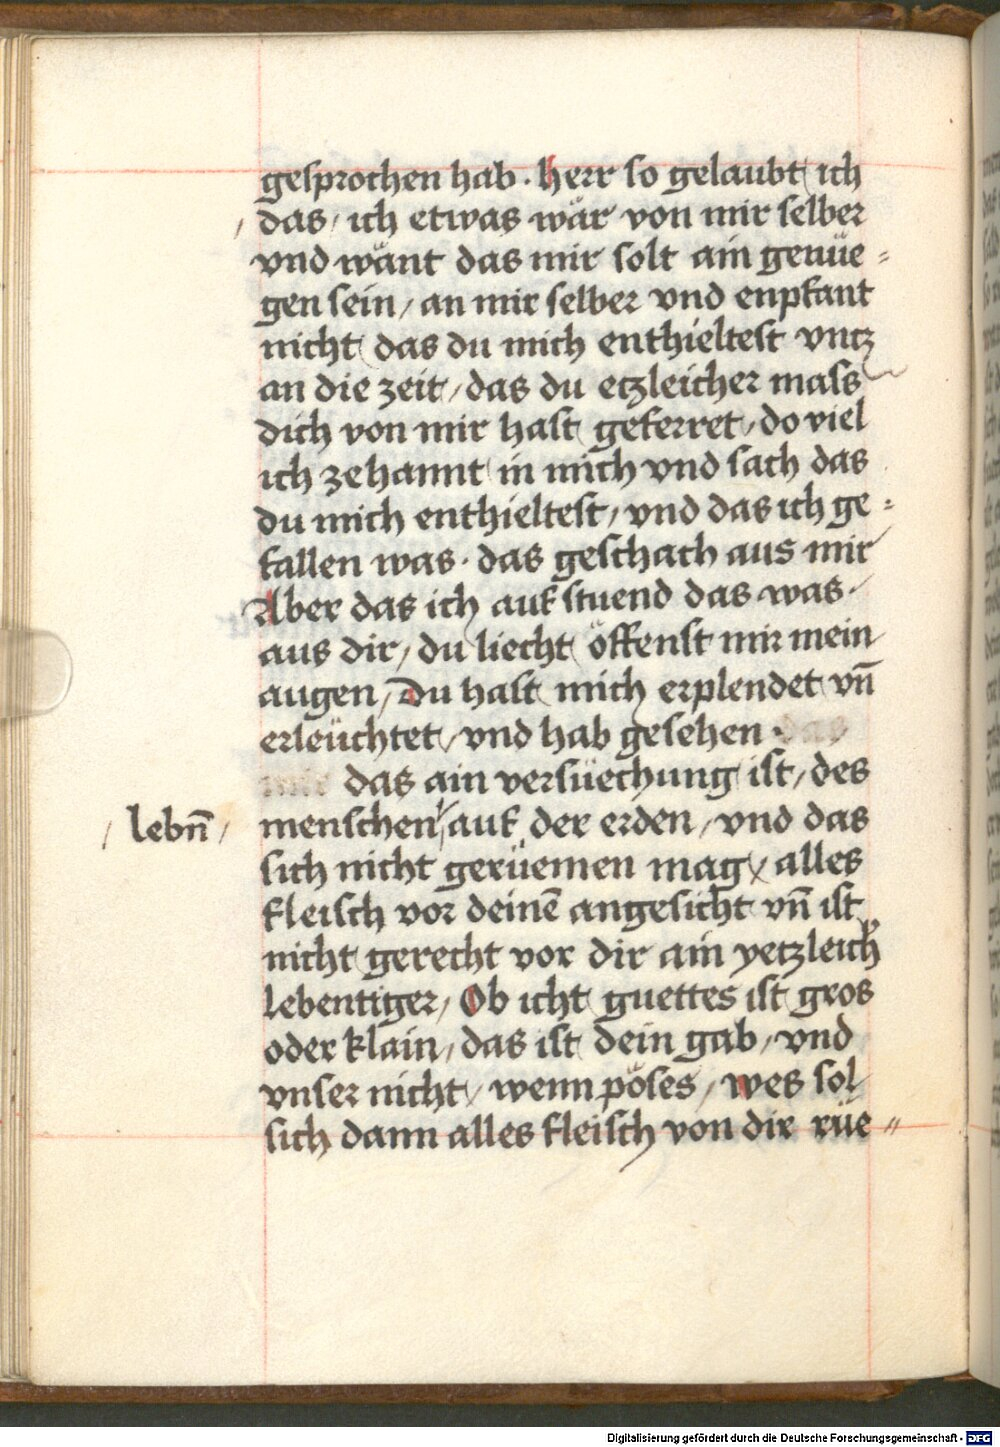 gesprochen hab · herr so gelaubt ich
das / ich etwas wär von mir selber
vnd wänt das mir solt ain genüe⸗
gen sein / an mir selber vnd enpfant
nicht das du mich enthieltest vntz
an die zeit / das du etzleicher mass
dich von mir hast geferret / do viel
ich zehannt in mich vnd sach das
du mich enthieltest / vnd das ich ge⸗
fallen was · das geschach aus mir
Aber das ich auf stuend das was
aus dir / du liecht öffenst mir mein
augen / Du hast mich erplendet vn̄
erleüchtet / vnd hab gesehen ·
das ain versüechung ist / des
lebn̄
menschen auf der erden / vnd das
sich nicht gerüemen mag / alles
fleisch vor deinē angesicht vn̄ ist
nicht gerecht vor dir ain yetzleich
lebentiger / Ob icht guettes ist gros
oder klain / das ist dein gab / vnd
vnser nicht / wenn pöses / wes sol
sich dann alles fleisch von dir rüe⸗
Digitalisierung gefördert durch die Deutsche Forschungsgemeinschaft - DFG